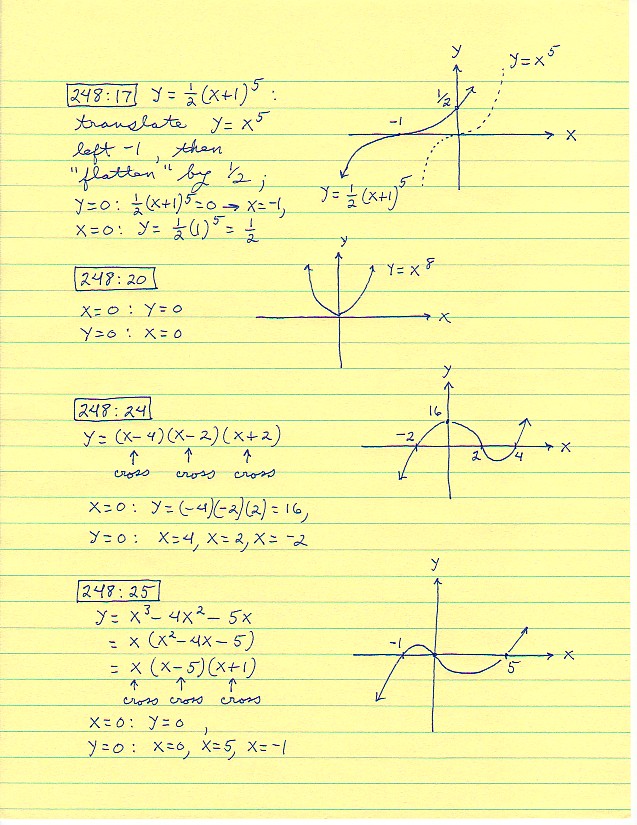 248:17 y = 1/2 (x+1)^5 :
translate y = x^5
left -1, then
"flatten" by 1/2 ;
y=0: 1/2 (x+1)^5 = 0 → x=-1,
x=0: y = 1/2 (1)^5 = 1/2
y
y = x^5
1/2
-1
x
y = 1/2 (x+1)^5
248:20
x=0 : y=0
y=0 : x=0
y
y = x^8
x
248:24
y = (x-4)(x-2)(x+2)
↑ ↑ ↑
cross cross cross
x=0: y=(-4)(-2)(2) = 16,
y=0: x=4, x=2, x=-2
y
16
-2
2
4
x
248:25
y = x^3 - 4x^2 - 5x
= x (x^2 - 4x - 5)
= x (x-5)(x+1)
↑ ↑ ↑
cross cross cross
x=0: y=0 ,
y=0: x=0, x=5, x=-1
y
-1
5
x